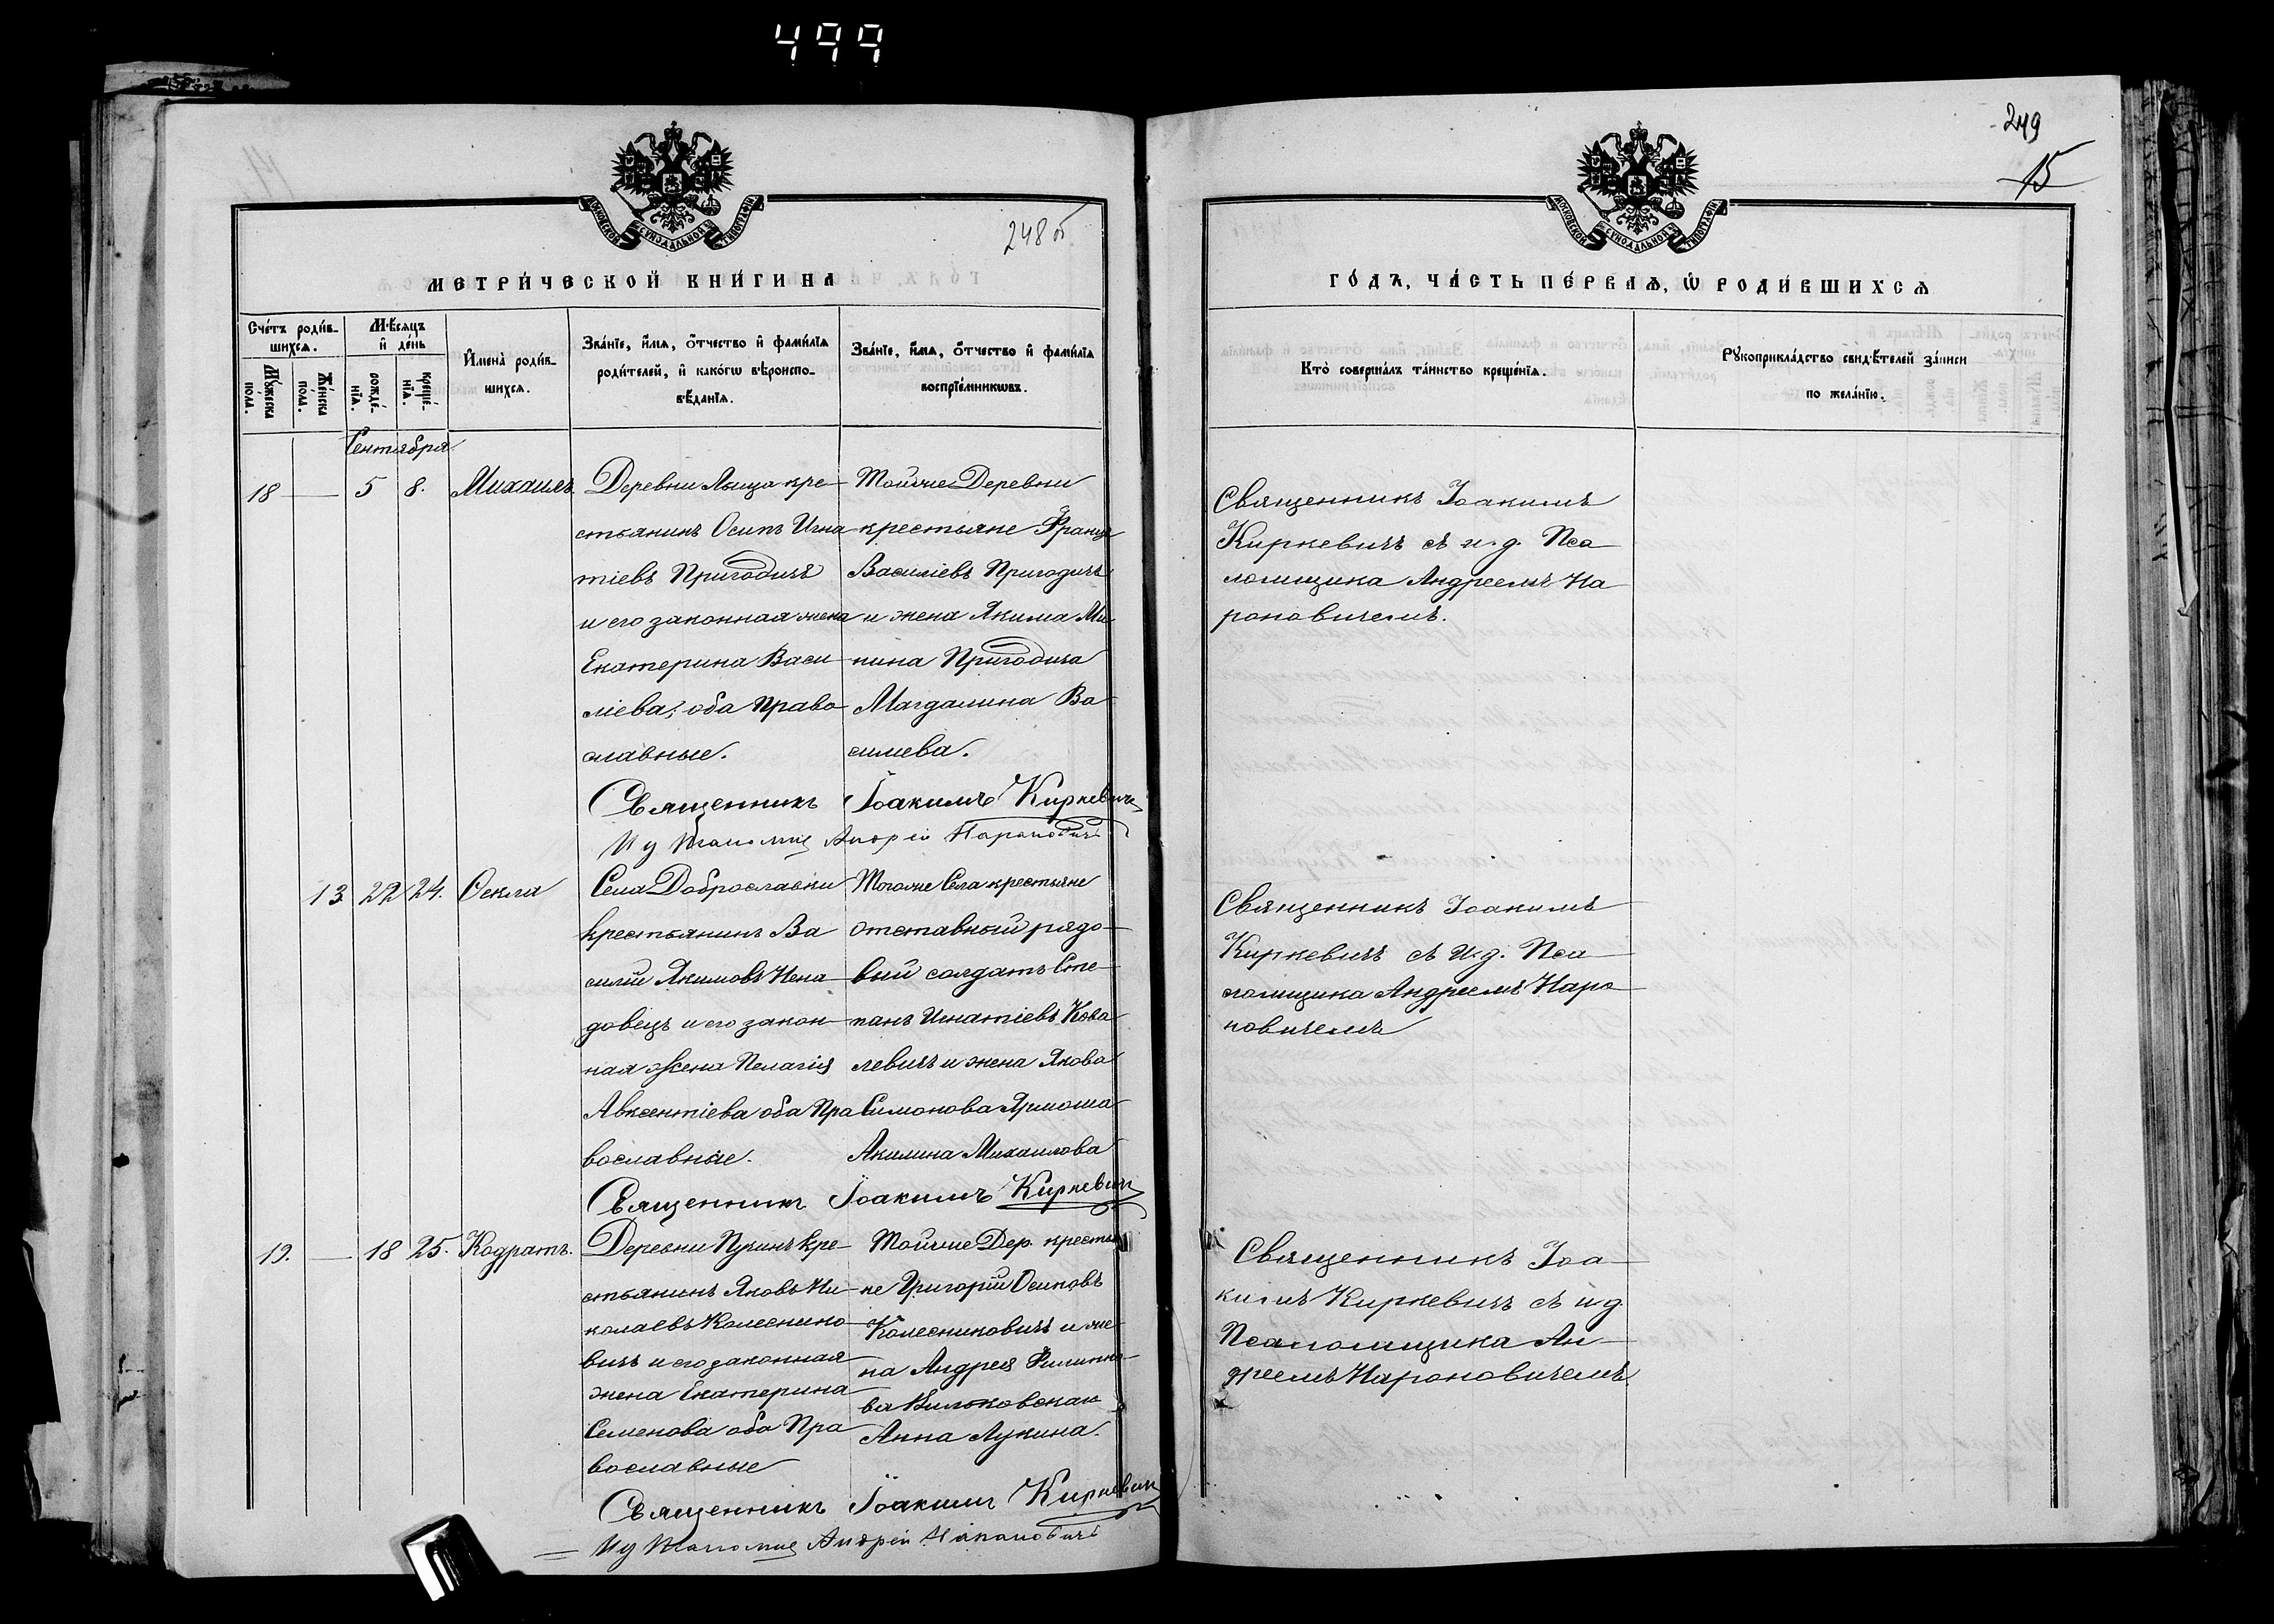 499
249
15
248 об
МОСКОВСКОЙ СѴНОДАЛЬНОЙ ТИПОГРАФІИ
МЕТРИ́ЧЕСКОЙ КНИ́ГИ НА
Сче́тъ роди́вшихсѧ.
Мꙋ́жеска пола̀.
Же́нска пола̀.
Мѣ́сѧцъ и҆ де́нь
рожде́нїѧ.
креще́нїѧ.
И҆мена̀ роди́вшихсѧ.
Зва́нїе, и҆́мѧ, ѻ҆́тчество и҆ фами́лїѧ
роди́телей, и҆ како́гѡ вѣроиспо-
вѣ́данїѧ.
Зва́нїе, и҆́мѧ, ѻ҆́тчество и҆ фами́лїѧ
воспрїе́мникѡвъ.
Сентября
18 — 5 8. Михаилъ
Деревни Лыща кре-
стьянинъ Осипъ Игна
тіевъ Пригодичъ
и его законная жена
Екатерина Васи-
ліева, оба право-
славные.
Тойже Деревни
крестьяне Францъ
Василіевъ Пригодичъ
и жена Якима Ми
нина Пригодича
Магдалина Ва-
силиева.
Священникъ Іоакимъ Киркевичъ
И д Псаломщ Андрей Нароновичъ
13 22 24. Ѳекла
Села Доброславки
крестьянинъ Ва
силій Якимовъ Нена-
довецъ и его закон-
ная жена Пелагія
Авксентіева оба Пра
вославные.
Тогоже Села крестьяне
отставный рядо-
вый солдатъ Сте-
панъ Игнатіевъ Кова
левичъ и жена Якова
Симонова Ярмоша
Акилина Михаилова
Священникъ Іоакимъ Киркевич
19. — 18 25. Кодратъ.
Деревни Пучинъ кре-
стьянинъ Яковъ Ни-
колаевъ Колеснико-
вичъ и его законная
жена Екатерина
Семенова оба Пра
вославные
Тойже Дер. крестья
не Григорій Осиповъ
Колесниковичъ и же-
на Андрея Филиппо-
ва
Анна Лукина.
Священникъ Іоакимъ Киркевич
И д Псаломщ Андрей Нароновичъ
ГО́ДЪ, ЧА́СТЬ ПЕ́РВАѦ, Ѡ҆ РОДИ́ВШИХСѦ
Кто̀ соверша́лъ та́инство креще́нїѧ.
Рꙋкоприкла́дство свидѣ́телей за́писи
по жела́нїю.
Священникъ Іоакимъ
Киркевичъ съ и. д. Пса
ломщика Андреемъ На
роновичемъ.
Священникъ Іоакимъ
Киркевичъ съ и. д. Пса
ломщика Андреемъ Наро
новичемъ
Священникъ Іоа-
кимъ Киркевичъ съ и д.
Псаломщика Ан-
дреемъ Нароновичемъ.